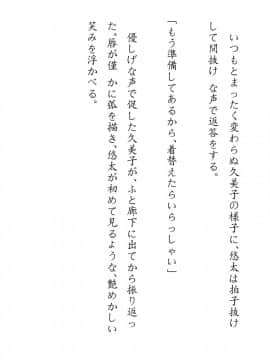 いつもとまったく変わらぬ久美子の様子に、悠太は拍子抜け
して間抜けな声で返答をする。
「もう準備してあるから、着替えたらいらっしゃい」
優しげな声で促した久美子が、ふと廊下に出てから振り返っ
た。唇が僅かに弧を描き、悠太が初めて見るような、艶めかしい
笑みを浮かべる。